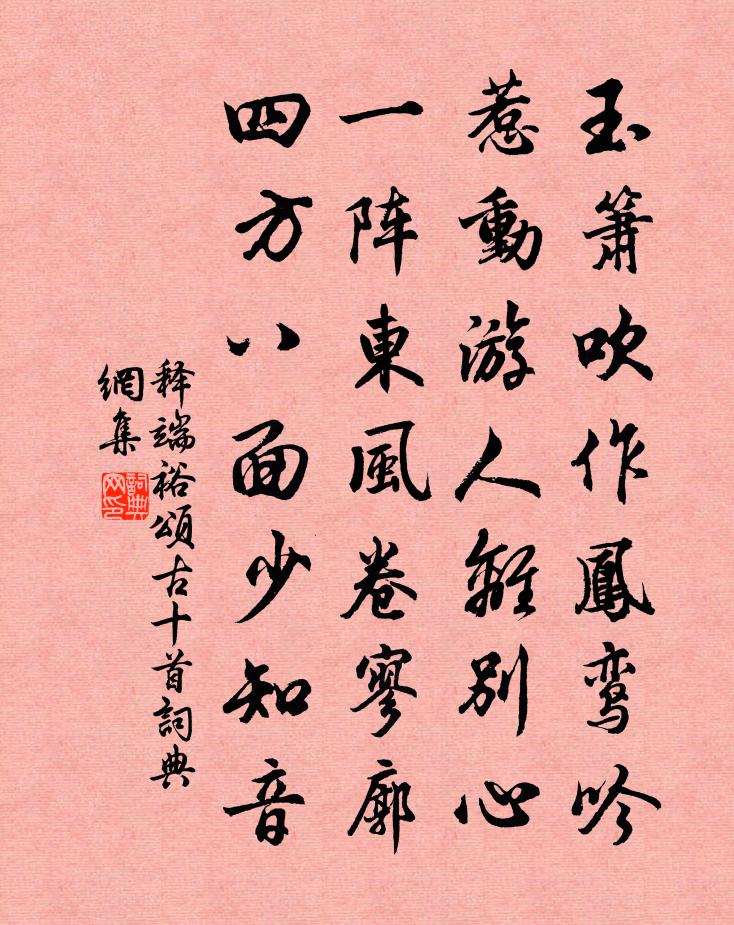 玉箫吹作鳳鸾吟
惹動游人離别心
一阵東風卷寥廓
四方八面少知音
释端裕頌古十首詞典
網集
詞典
网印